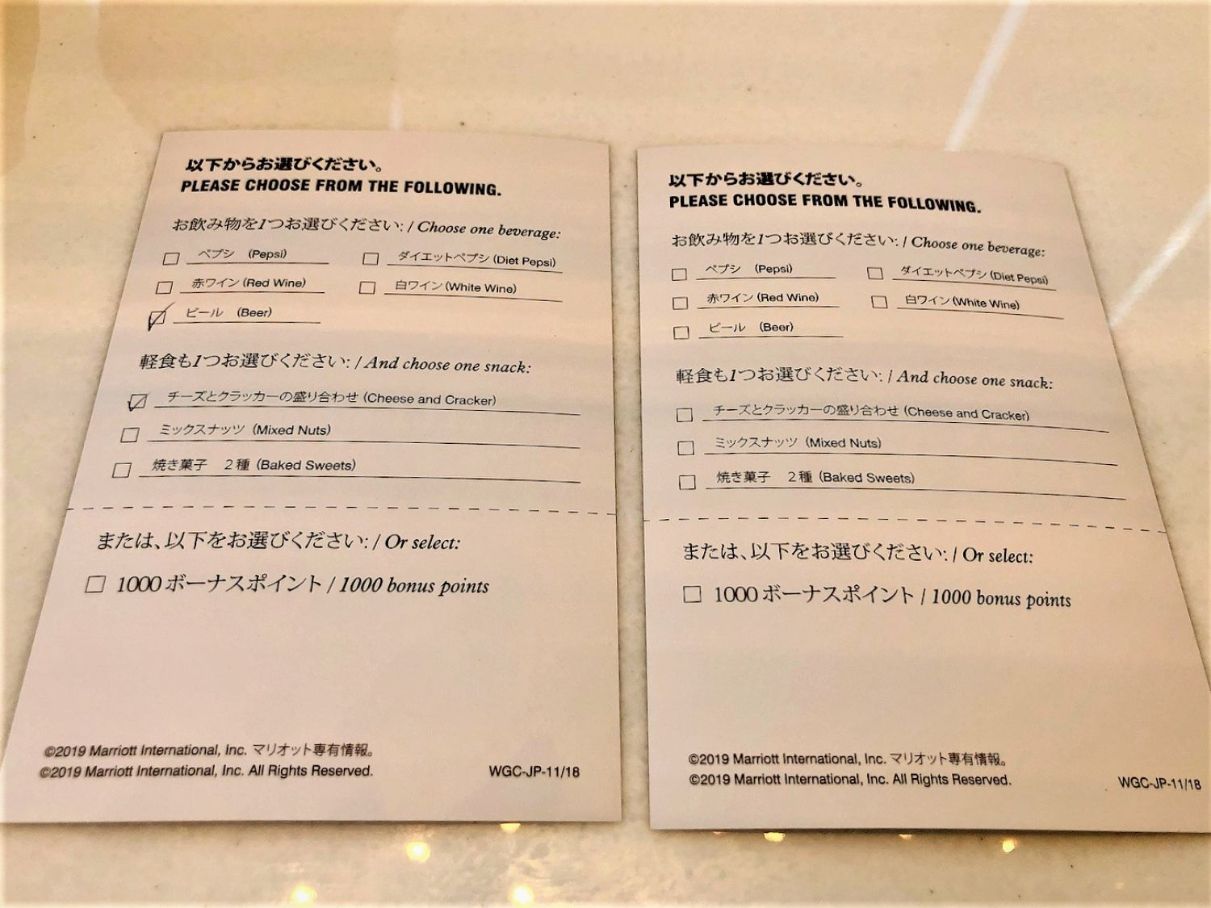 以下からお選びください。
PLEASE CHOOSE FROM THE FOLLOWING.
お飲み物を1つお選びください: / Choose one beverage:
ペプシ (Pepsi) ダイエットペプシ (Diet Pepsi)
赤ワイン (Red Wine) 白ワイン (White Wine)
ビール (Beer)
軽食も1つお選びください: / And choose one snack:
チーズとクラッカーの盛り合わせ (Cheese and Cracker)
ミックスナッツ (Mixed Nuts)
焼き菓子 2種 (Baked Sweets)
または、以下をお選びください: / Or select:
1000 ボーナスポイント / 1000 bonus points
©2019 Marriott International, Inc. マリオット専有情報。
©2019 Marriott International, Inc. All Rights Reserved. WGC-JP-11/18
以下からお選びください。
PLEASE CHOOSE FROM THE FOLLOWING.
お飲み物を1つお選びください: / Choose one beverage:
ペプシ (Pepsi) ダイエットペプシ (Diet Pepsi)
赤ワイン (Red Wine) 白ワイン (White Wine)
ビール (Beer)
軽食も1つお選びください: / And choose one snack:
チーズとクラッカーの盛り合わせ (Cheese and Cracker)
ミックスナッツ (Mixed Nuts)
焼き菓子 2種 (Baked Sweets)
または、以下をお選びください: / Or select:
1000 ボーナスポイント / 1000 bonus points
©2019 Marriott International, Inc. マリオット専有情報。
©2019 Marriott International, Inc. All Rights Reserved. WGC-JP-11/18